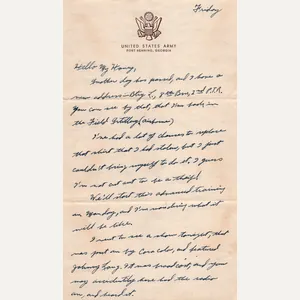 Friday
UNITED STATES ARMY
FORT BENNING, GEORGIA
Hello My Honey,
Another day has passed, and I have a
new address – Btry C, Bn, 2nd P.T.R.
You can see by that, that I'm back in
the Field Artillery (airborne)
I've had a lot of chances to replace
that shirt that I had stolen, but I just
couldn't bring myself to do it, I guess
I'm not cut out to be a thief!
We'll start this advanced training
on Monday, and I'm wondering what it
will be like.
I went to see a show tonight, that
was put on by Coca cola, and featured
Johnny Long. It was broadcast, and you
may accidently have had the radio
on, and heard it.